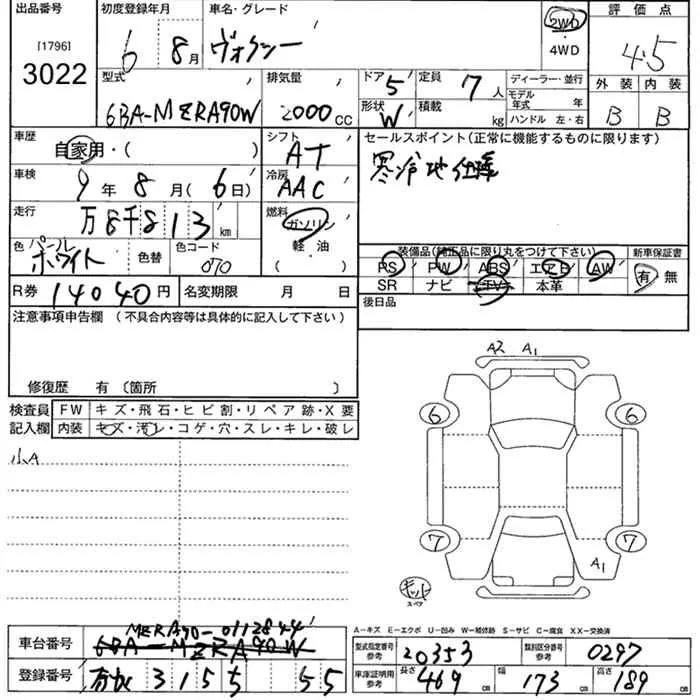 出品番号
[1796]
3022
初度登録年月
6 8月
車名・グレード
ヴォクシー
2WD
4WD
評価点
4.5
外装 内装
B B
型式
6BA-MZRA90W
排気量
2000CC
ドア
5
形状
W
定員
7人
積載
kg
ディーラー・並行
モデル年式 年
ハンドル 左・右
車歴
自家用・( )
シフト
AT
セールスポイント(正常に機能するものに限ります)
寒冷地仕様
車検
9年 8月(6日)
冷房
AAC
走行
万8千813km
燃料
ガソリン
軽・油
( )
色
パールホワイト
色替
色コード
070
装備品(純正品に限り丸をつけて下さい)
PS PW ABS エアB AW
SR ナビ TV 本革
新車保証書
有 無
R券 14040円
名変期限 月 日
後日品
注意事項申告欄 (不具合内容等は具体的に記入して下さい)
修復歴 有 (箇所 )
検査員記入欄
FW キズ・飛石・ヒビ割・リペア跡・X要
内装 キズ・汚レ・コゲ・穴・スレ・キレ・破レ
小A
A2 A1
6 6
7 7
A1
キット
スペア
A-キズ E-エクボ U-凹み W-補修跡 S-サビ C-腐食 XX-交換済
車台番号
MZRA90-0112844
6BA-MZRA90W
登録番号
3155 55
型式指定番号
参考
20353
類別区分番号
参考
0297
車庫証明用
参考
長さ 469cm
幅 173cm
高さ 189cm